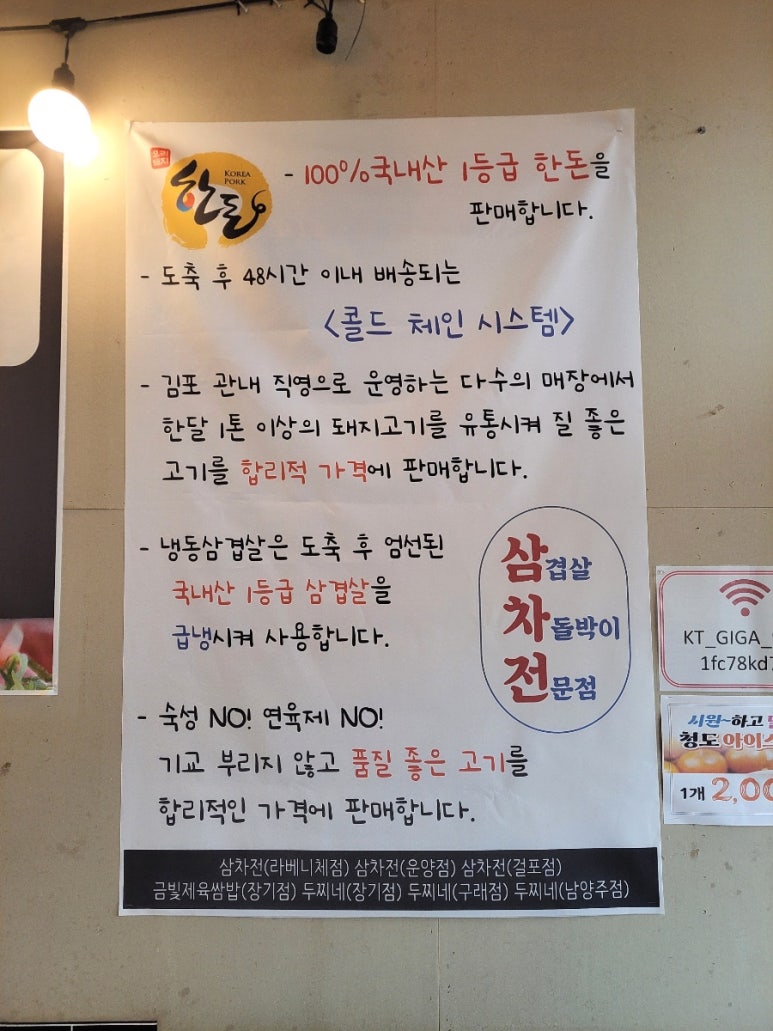 한돈
KOREA
PORK
- 100% 국내산 1등급 한돈을
판매합니다.
- 도축 후 48시간 이내 배송되는
<콜드 체인 시스템>
- 김포 관내 직영으로 운영하는 다수의 매장에서
한달 1톤 이상의 돼지고기를 유통시켜 질 좋은
고기를 합리적 가격에 판매합니다.
- 냉동삼겹살은 도축 후 엄선된
국내산 1등급 삼겹살을
급냉시켜 사용합니다.
삼겹살
차돌박이
전문점
- 숙성 NO! 연육제 NO!
기교 부리지 않고 품질 좋은 고기를
합리적인 가격에 판매합니다.
삼차전(라베니체점) 삼차전(운양점) 삼차전(걸포점)
금빛제육쌈밥(장기점) 두찌네(장기점) 두찌네(구래점) 두찌네(남양주점)
KT_GIGA_
1fc78kd7
시원~하고
청도 아이스
1개 2,00